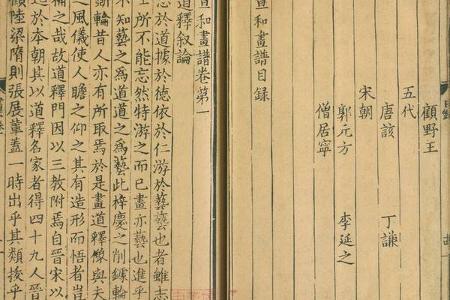 顧野王
五代
唐該　丁謙
宋朝
郭元方　李延之
僧居寧
宣和畫譜目錄
宣和畫譜卷第一
道釋叙論
志於道據於德依於仁游於藝藝也者雖志
士所不能忘然特游之而已畫亦藝也進乎
不知藝之為道道之為藝此梓慶之削鐻輪
斲輪昔人亦有所取焉於是畫道釋像與夫
之風儀使人瞻之仰之其有造形而悟者豈
補之哉故道釋門因以三教附焉自晉宋以
迄於本朝其以道釋名家者得四十九人晉
顧陸梁隋則張展董蓋一時出乎其類拔乎